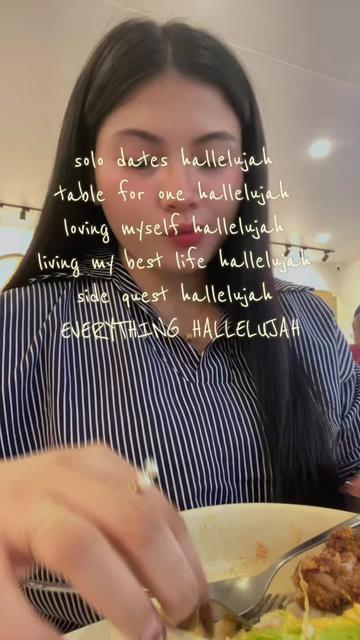 solo dates hallelujah
table for one hallelujah
loving myself hallelujah
living my best life hallelujah
side quest hallelujah
EVERYTHING HALLELUJAH